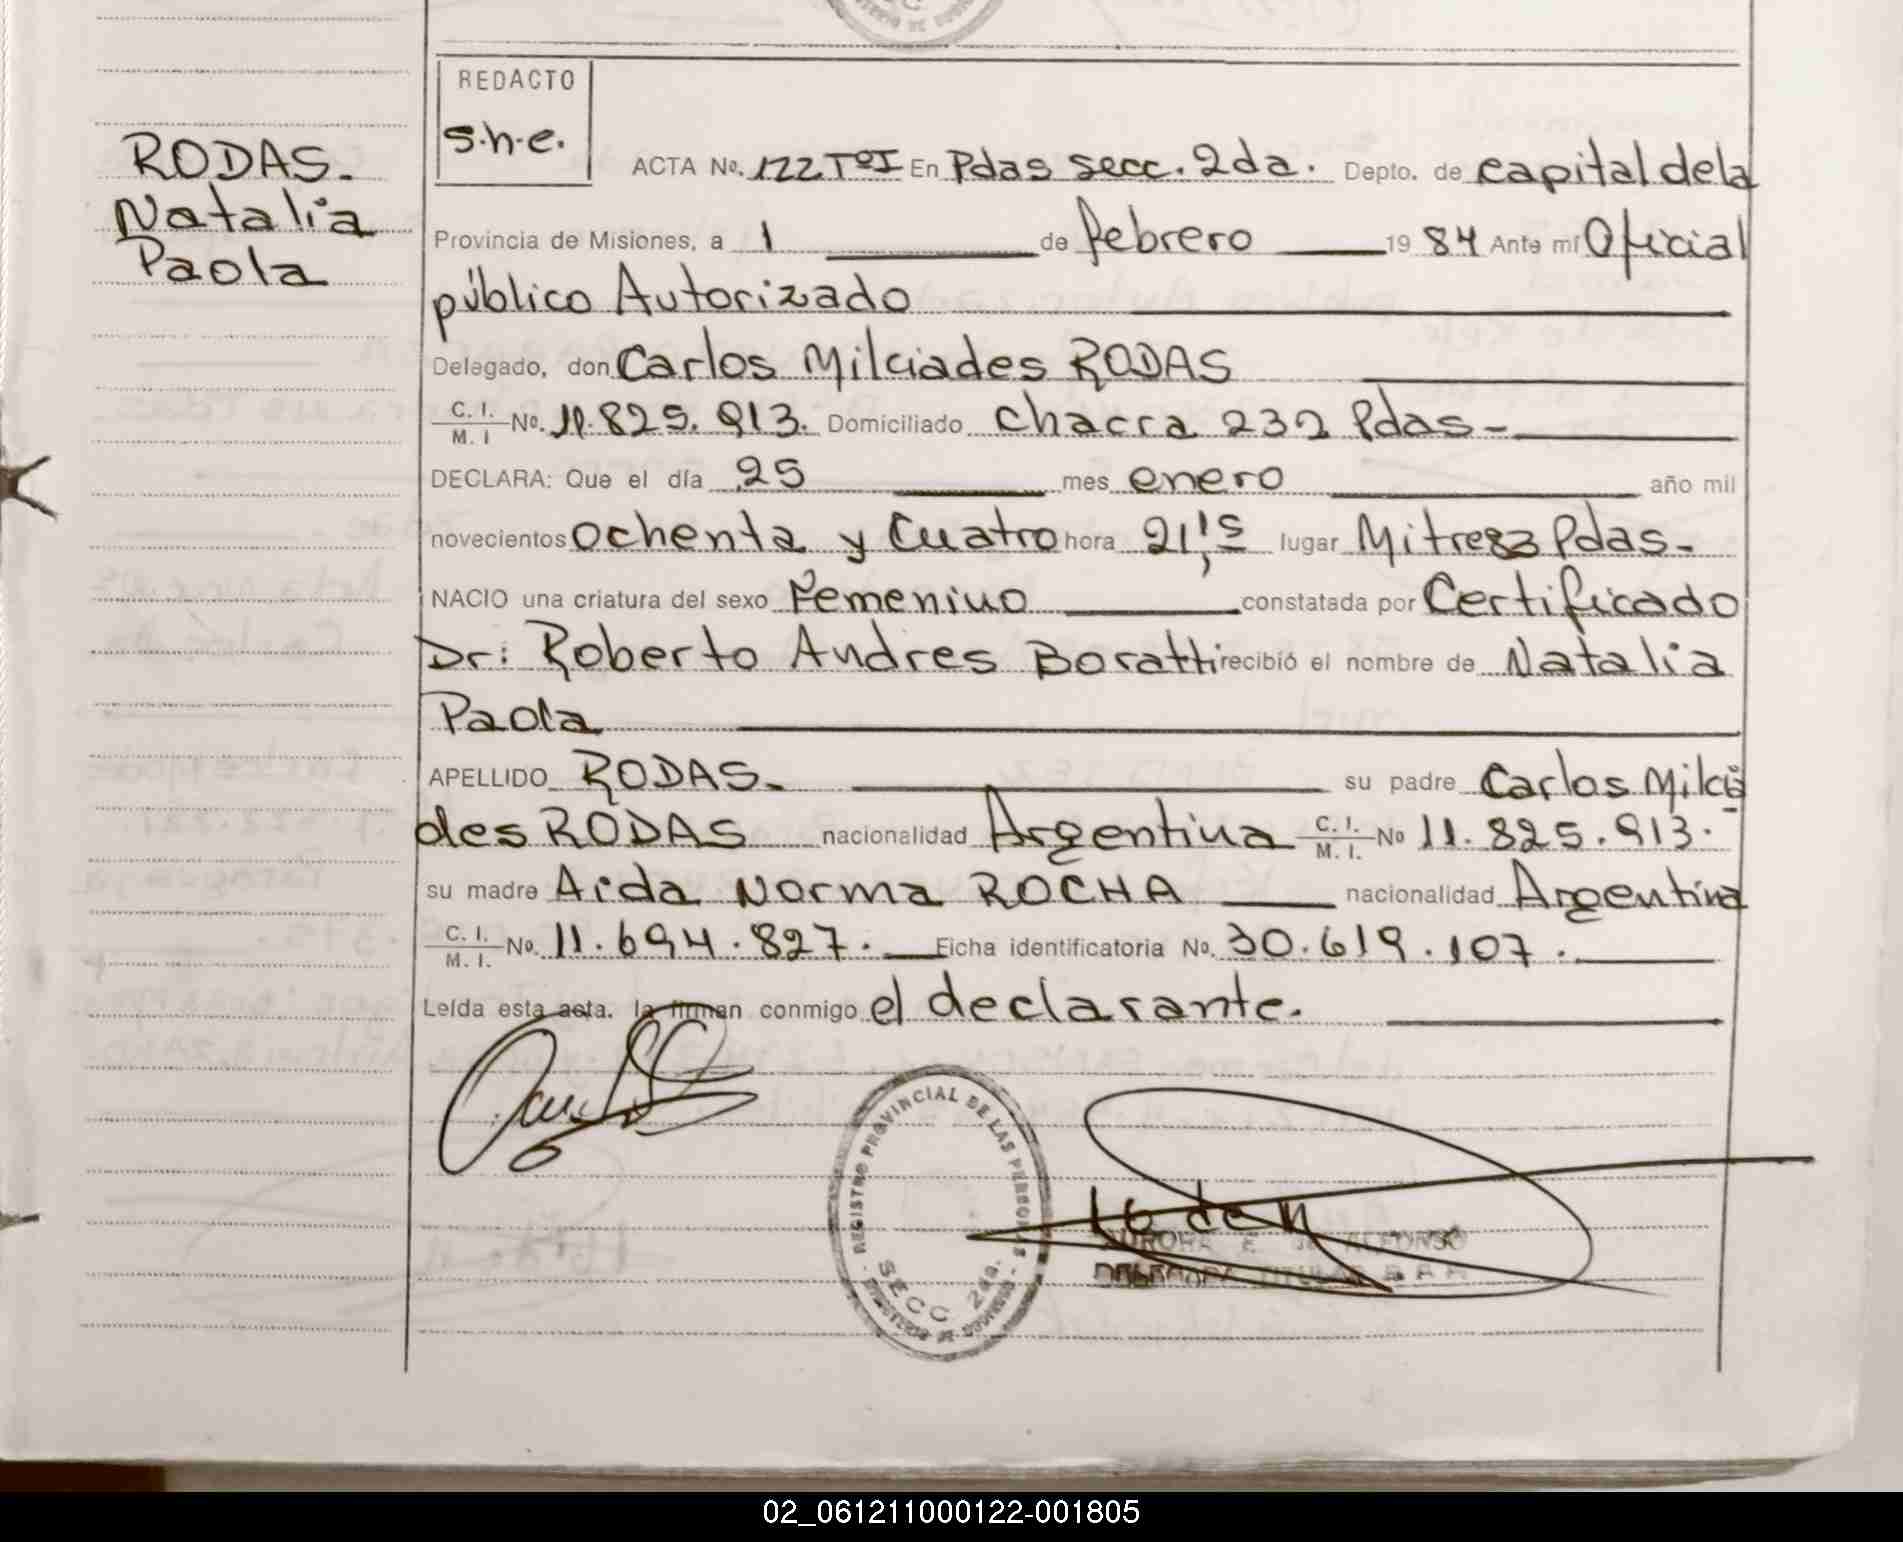 REDACTO
s.h.e.
RODAS.
Natalia
Paola
ACTA No. 122 TºI En Pdas secc. 2da. Depto. de capital de la
Provincia de Misiones, a 1 de febrero 19 84 Ante mí Oficial
público Autorizado
Delegado, don Carlos Milciades RODAS
C. I. / M. I No. 11.825.913. Domiciliado chacra 232 Pdas-
DECLARA: Que el día 25 mes enero año mil
novecientos ochenta y Cuatro hora 21,15 lugar Mitre 83 Pdas-
NACIO una criatura del sexo Femenino constatada por Certificado
Dr: Roberto Andres Boratti recibió el nombre de Natalia
Paola
APELLIDO RODAS. su padre Carlos Milcia
des RODAS nacionalidad Argentina C. I. / M. I. No 11.825.913.
su madre Aida Norma ROCHA nacionalidad Argentina
C. I. / M. I. No. 11.694.827. Ficha identificatoria No. 30.619.107.
Leída esta acta. la firman conmigo el declarante.
REGISTRO PROVINCIAL DE LAS PERSONAS
SECC 2da.
MINISTERIO DE GOBIERNO
AURORA E. de ALFONSO
DELEGADA TITULAR
02_061211000122-001805